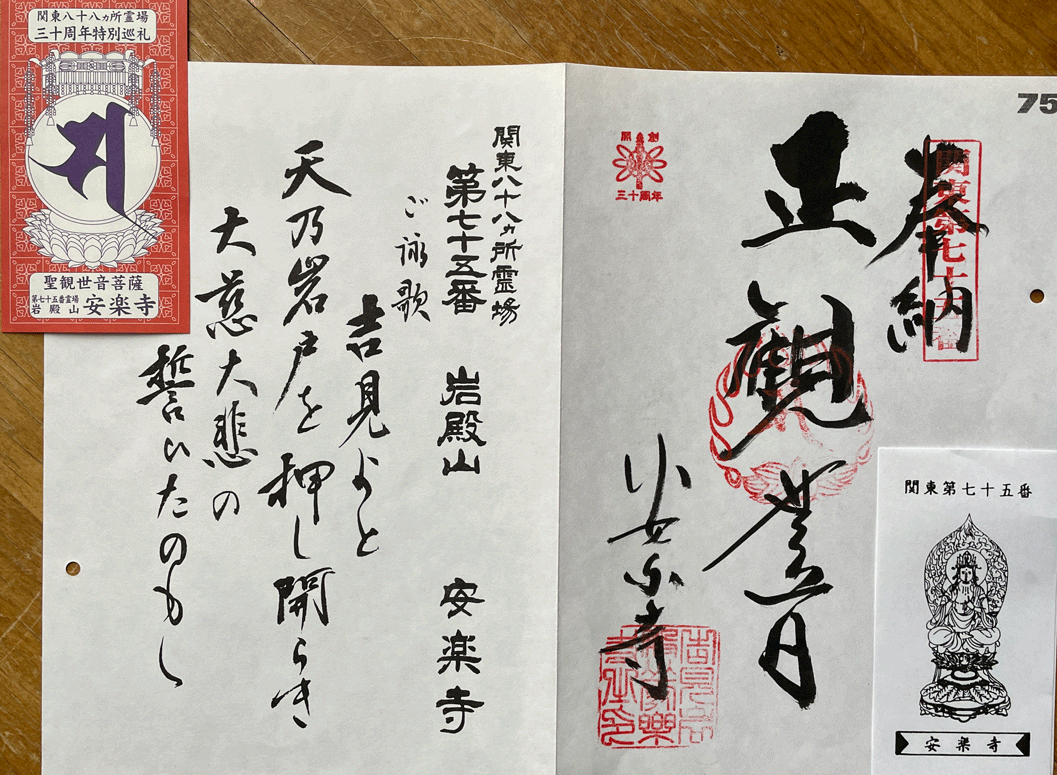 関東八十八ヵ所霊場
三十周年特別巡礼
聖観世音菩薩
第七十五番霊場
岩殿山
安楽寺
75
奉納
関東第七十五番
正觀世音
開創
三十周年
安楽寺
関東八十八ヵ所霊場
第七十五番 岩殿山 安楽寺
ご詠歌
吉見よと
天乃岩戸を押し開らき
大慈大悲の
誓ひたのもし
関東第七十五番
安楽寺